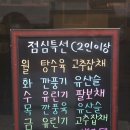 점심특선 (2인이상
월 탕수육 고추잡채
화 깐풍기 유산슬
수 유린기 팔보채
목 깐풍기 유산슬
금 유린기 고추잡채